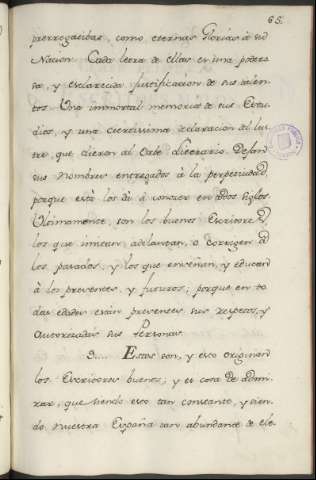 65.
prerrogatibas, como eternas Glorias à su
Nacion. Cada letra de ellas es una podero
sa, y esclarecida justificacion de sus talen-
tos. Una inmortal memoria de sus Estu-
dios, y una ciertissima declaracion del lus-
tre, que dieron al Orbe Literario. Dejan
sus Nombres entregados à la perpetuidad,
porque esta los dà à conocer en todos siglos.
Ultimamente, son los buenos Escritores
los que imitan, adelantan, o corrigen à
los pasados, y los que enseñan, y educan
à los presentes, y futuros; porque en to
das edades estàn presentes sus respetos, y
autorizadas sus Personas.
Estos son, y esto originan
los Escritores buenos; y es cosa de admi-
rar, que siendo esto tan constante, y sien-
do nuestra España tan abundante de ele-